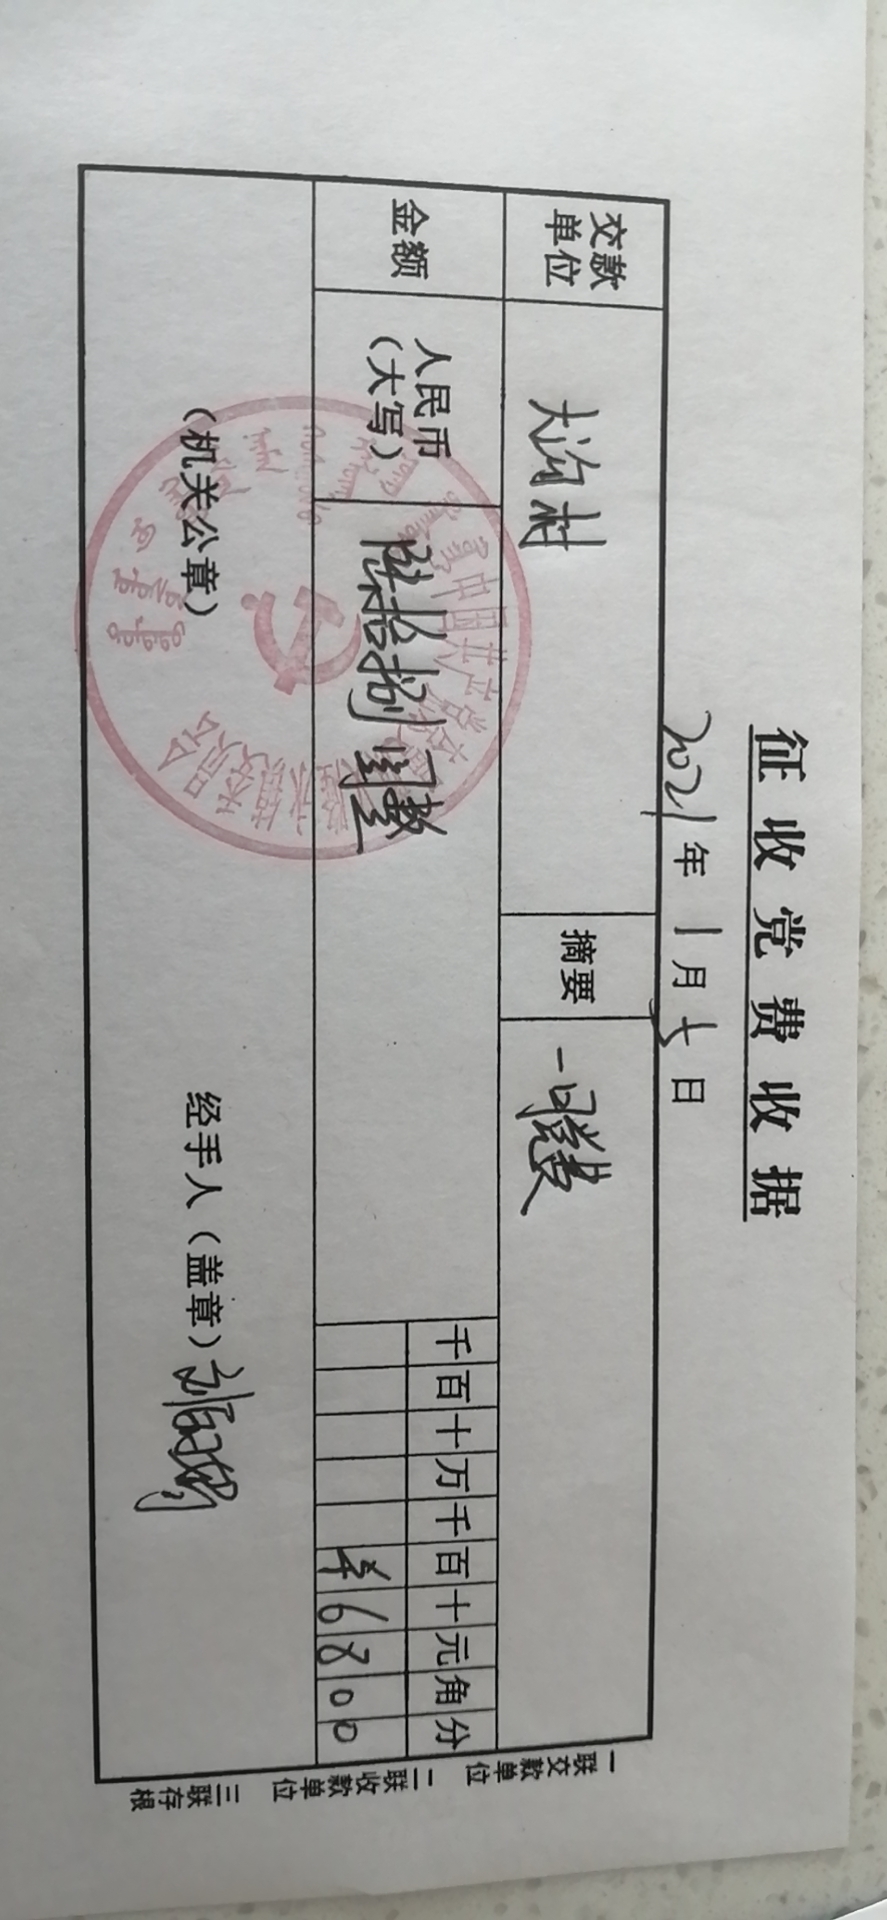 征收党费收据
2021年1月七日
交款单位 大沟村 摘要 一月党费
金额 人民币（大写） 陆拾捌圆整 千百十万千百十元角分
¥6800
（机关公章） 经手人（盖章）
中国共产党
委员会
一联交款单位 二联收款单位 三联存根